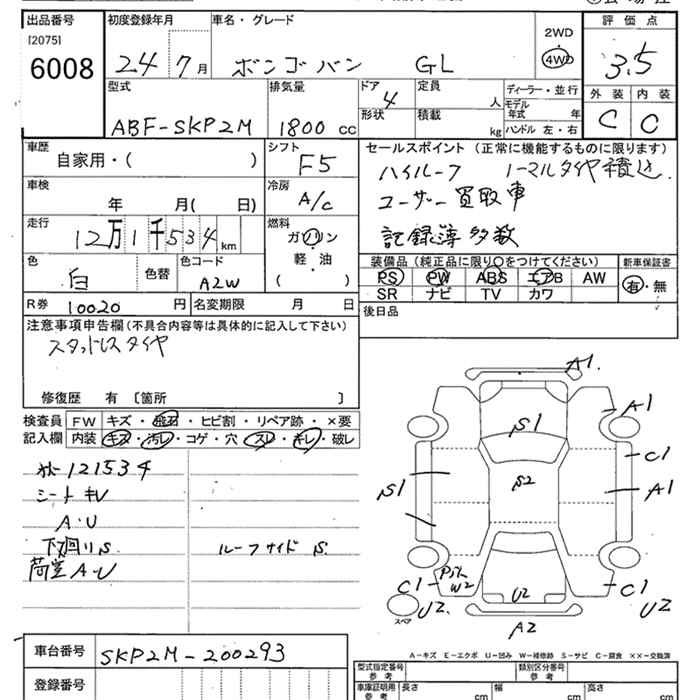 出品番号
[2075]
6008
初度登録年月
24 7 月
車名・グレード
ボンゴバン GL
2WD
4WD
評価点
3.5
外装 内装
C C
型式
ABF-SKP2M
排気量
1800 cc
ドア
4
形状
定員
人
積載
kg
ディーラー・並行
モデル
年式 年
ハンドル 左・右
車歴
自家用・( )
シフト
F5
車検
年 月( 日)
冷房
A/C
走行
12万1千534 km
燃料
ガソリン
軽・油
( )
色
白
色替
色コード
A2W
R券 10020 円
名変期限 月 日
セールスポイント(正常に機能するものに限ります)
ハイルーフ ノーマルタイヤ積込
ユーザー買取車
記録簿多数
装備品(純正品に限り○をつけてください)
PS PW ABS エアB AW
SR ナビ TV カワ
新車保証書
有・無
後日品
注意事項申告欄(不具合内容等は具体的に記入して下さい)
スタッドレスタイヤ
修復歴 有 〔箇所 〕
検査員
記入欄
FW キズ・飛石・ヒビ割・リペア跡・×要
内装 キズ・汚レ・コゲ・穴・スレ・キレ・破レ
121534
シートキレ
A・U
下廻りS
荷室A・U
ルーフサイド S
A1
A1
S1
C1
S2
A1
S1
C1
W2
U2
C1
U2
U2
スペア
A2
A-キズ E-エクボ U-凹み W-補修跡 S-サビ C-腐食 ××-交換済
車台番号
SKP2M-200293
登録番号
型式指定番号
参考
類別区分番号
参考
車庫証明用
参考
長さ cm
幅 cm
高さ cm